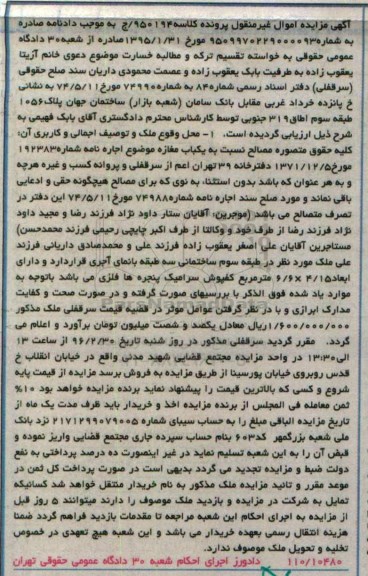 آگهی مزایده اموال غیرمنقول پرونده کلاسه۹۵۰۱۹۴/ج به موجب دادنامه صادره
به شماره۹۵۰۹۹۷۰۲۲۹۰۰۰۰۹۳ مورخ ۱۳۹۵/۱/۳۱صادره از شعبه۳۰ دادگاه
عمومی حقوقی به خواسته تقسیم ترکه و مطالبه خسارت موضوع دعوی خانم آزیتا
یعقوب زاده به طرفیت بابک یعقوب زاده و عصمت محمودی داریان سند صلح حقوقی
(سرقفلی) دفتر اسناد رسمی شماره۸۴ به شماره۷۴۹۹۰ مورخ۷۴/۵/۱۱ به نشانی
خ پانزده خرداد غربی مقابل بانک سامان (شعبه بازار) ساختمان جهان پلاک۱۰۵۶
طبقه سوم اطاق۳۱۹ جنوبی توسط کارشناس محترم دادگستری آقای بابک فهیمی به
شرح ذیل ارزیابی گردیده است. ۱- محل وقوع ملک و توصیف اجمالی و کاربری آن:
کلیه حقوق متصوره مصالح نسبت به یکباب مغازه موضوع اجاره نامه شماره۱۹۲۳۸۳
مورخ۱۳۷۱/۱۲/۵ دفترخانه ۳۹ تهران اعم از سرقفلی و پروانه کسب و غیره هرچه
و به هر عنوان که باشد بدون استثناء به نوی که برای مصالح هیچگونه حقی و ادعایی
باقی نماند و مورد صلح سند اجاره نامه شماره۷۴۹۸۸ مورخ۷۴/۵/۱۱ این دفتر در
تصرف متصالح می باشد (موجرین: آقایان ستار داود نژاد فرزند رضا و مجید داود
نژاد فرزند رضا از طرف خود و وکالتا از طرف اکبر چایچی رحیمی فرزند محمدحسن)
مستاجرین آقایان علی اصغر یعقوب زاده فرزند علی و محمدصادق داریانی فرزند
علی ملک مورد نظر در طبقه سوم ساختمانی سه طبقه بانمای آجری قراردارد و دارای
ابعاد۴/۱۵ ×۶/۶ مترمربع کفپوش سرامیک پنجره ها فلزی می باشد باتوجه به
موارد یاد شده فوق الذکر با بررسیهای صورت گرفته و در صورت صحت و کفایت
مدارک ابرازی و با در نظر گرفتن عوامل موثر در قضیه قیمت سرقفلی ملک مذکور
۱/۶۰۰/۰۰۰/۰۰۰ریال معادل یکصد و شصت میلیون تومان برآورد و اعلام می
گردد. مقرر گردید سرقفلی مذکور در روز شنبه تاریخ ۹۶/۲/۳۰ از ساعت ۱۳
الی۱۳:۳۰ در واحد مزایده مجتمع قضایی شهید مدنی واقع در خیابان انقلاب خ
قدس روبروی خیابان پورسینا از طریق مزایده به فروش برسد مزایده از قیمت پایه
شروع و کسی که بالاترین قیمت را پیشنهاد نماید برنده مزایده خواهد بود ۱۰%
ثمن معامله فی المجلس از برنده مزایده اخذ و خریدار باید ظرف مدت یک ماه از
تاریخ مزایده الباقی مبلغ را به حساب سیبای شماره ۲۱۷۱۲۹۹۰۷۹۰۰۵ نزد بانک
ملی شعبه بزرگمهر کد۶۰۳ بنام حساب سپرده جاری مجتمع قضایی واریز نموده و
قبض آن را به این شعبه تسلیم نماید در غیر اینصورت ده درصد پرداختی به نفع
دولت ضبط و مزایده تجدید می گردد بدیهی است در صورت پرداخت کل ثمن در
موعد مقرر و تائید مزایده ملک مذکور به نام خریدار منتقل خواهد شد کسانیکه
تمایل به شرکت در مزایده و بازدید ملک موصوف را دارند میتوانند ۵ روز قبل
از مزایده به اجرای احکام این شعبه مراجعه تا مقدمات بازدید فراهم گردد ضمنا
هزینه انتقال رسمی بعهده خریدار می باشد و این شعبه هیچ تعهدی در خصوص
تخلیه و تحویل ملک موصوف ندارد.
۱۱۰/۱۰۴۸۰ دادورز اجرای احکام شعبه ۳۰ دادگاه عمومی حقوقی تهران